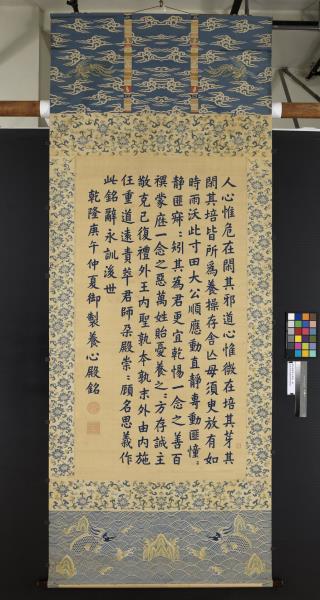 人心惟危在閑其邪道心惟微在培其芽其
閑其培皆所為養操存舍亡毋須臾放有如
時雨沃此寸田大公順應動直靜專動匪憧〻
靜匪寐〻矧其為君更宜乾惕一念之善百
禩蒙庥一念之惡萬姓貽憂養之〻方存誠主
敬克己復禮外王內聖孰本孰末外由內施
任重道遠責萃君師朵殿崇〻顧名思義作
此銘辭永訓後世
乾隆庚午仲夏御製養心殿銘